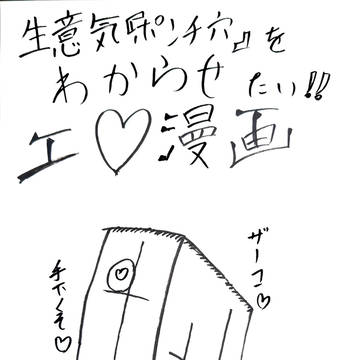 生意気『ポンチ穴』を
わからせたい!!
エ♡漫画
ザーコ♡
手下くそ♡